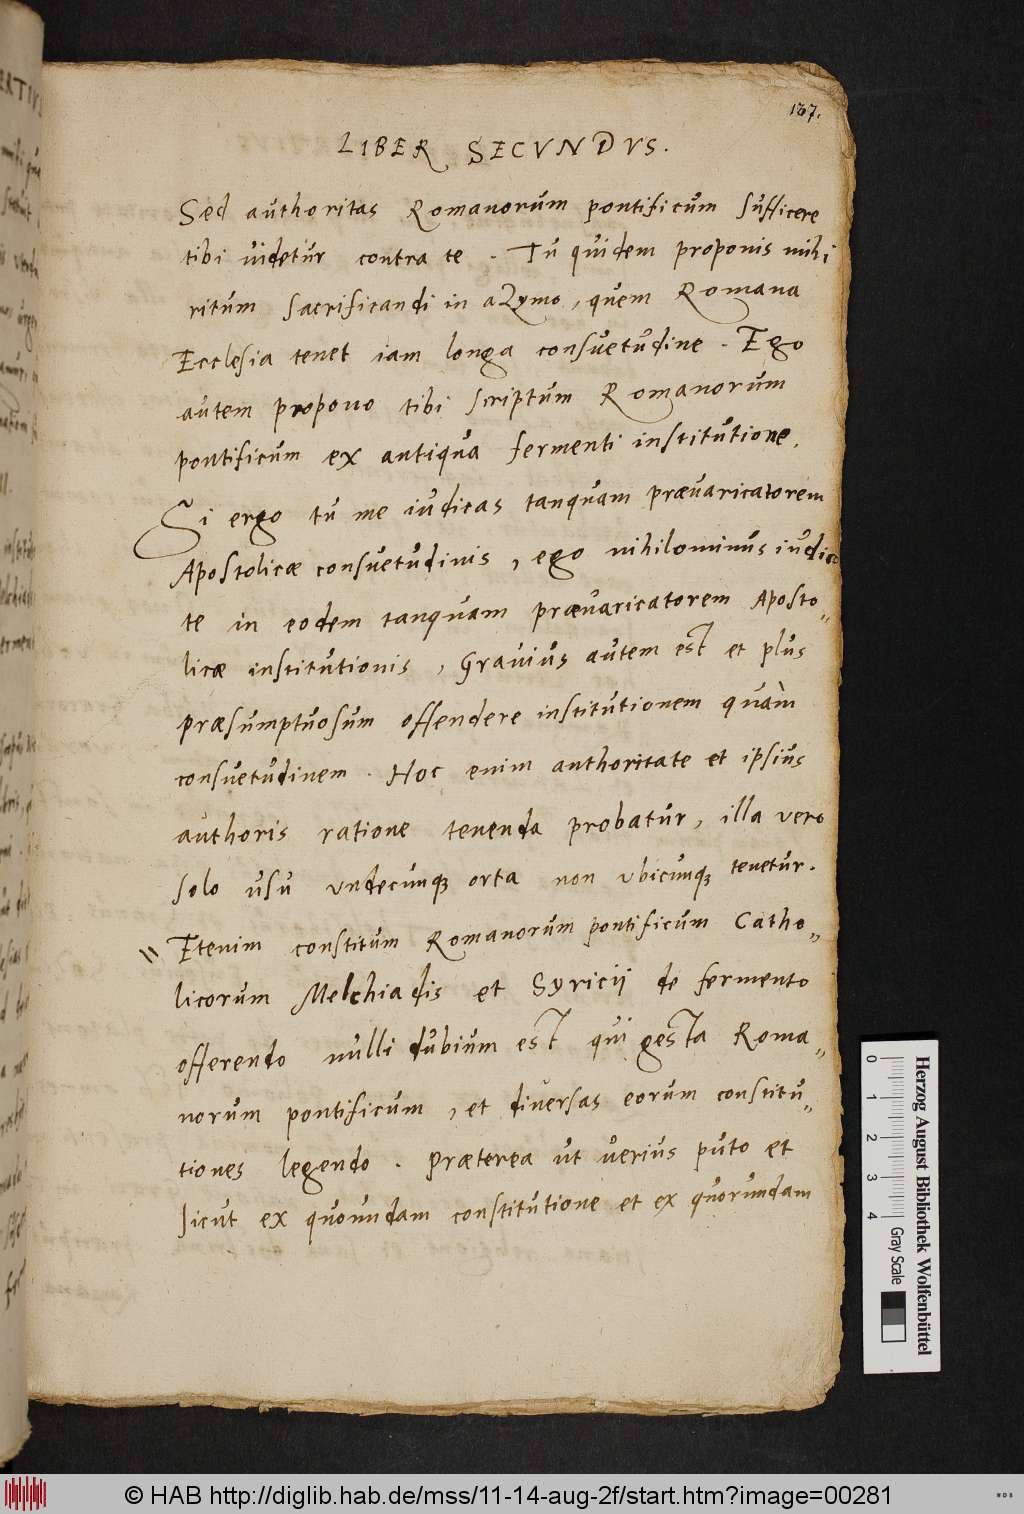 137.
LIBER SECVNDVS.
Sed authoritas Romanorum pontificum sufficere
tibi videtur contra te . Tu quidem proponis mihi
ritum sacrificandi in azymo, quem Romana
Ecclesia tenet iam longa consuetudine . Ego
autem propono tibi scriptum Romanorum
pontificum ex antiqua fermenti institutione.
Si ergo tu me iudicas tanquam prævaricatorem
Apostolicæ consuetudinis, ego nihilominus iudico
te in eodem tanquam prævaricatorem Aposto„
licæ institutionis, Gravius autem est et plus
præsumptuosum offendere institutionem quàm
consuetudinem . Hoc enim authoritate et ipsius
authoris ratione tenenda probatur, illa vero
solo usu vndecunqȝ orta non vbicunqȝ tenetur.
" Etenim constitum Romanorum pontificum Catho„
licorum Melchiadis et Syricij de fermento
offerendo nulli dubium est qui gesta Roma„
norum pontificum, et diversas eorum constitu„
tiones legendo . Præterea ut verius puto et
sicut ex quorundam constitutione et ex quorundam
Herzog August Bibliothek Wolfenbüttel
0 1 2 3 4 Gray Scale
© HAB http://diglib.hab.de/mss/11-14-aug-2f/start.htm?image=00281